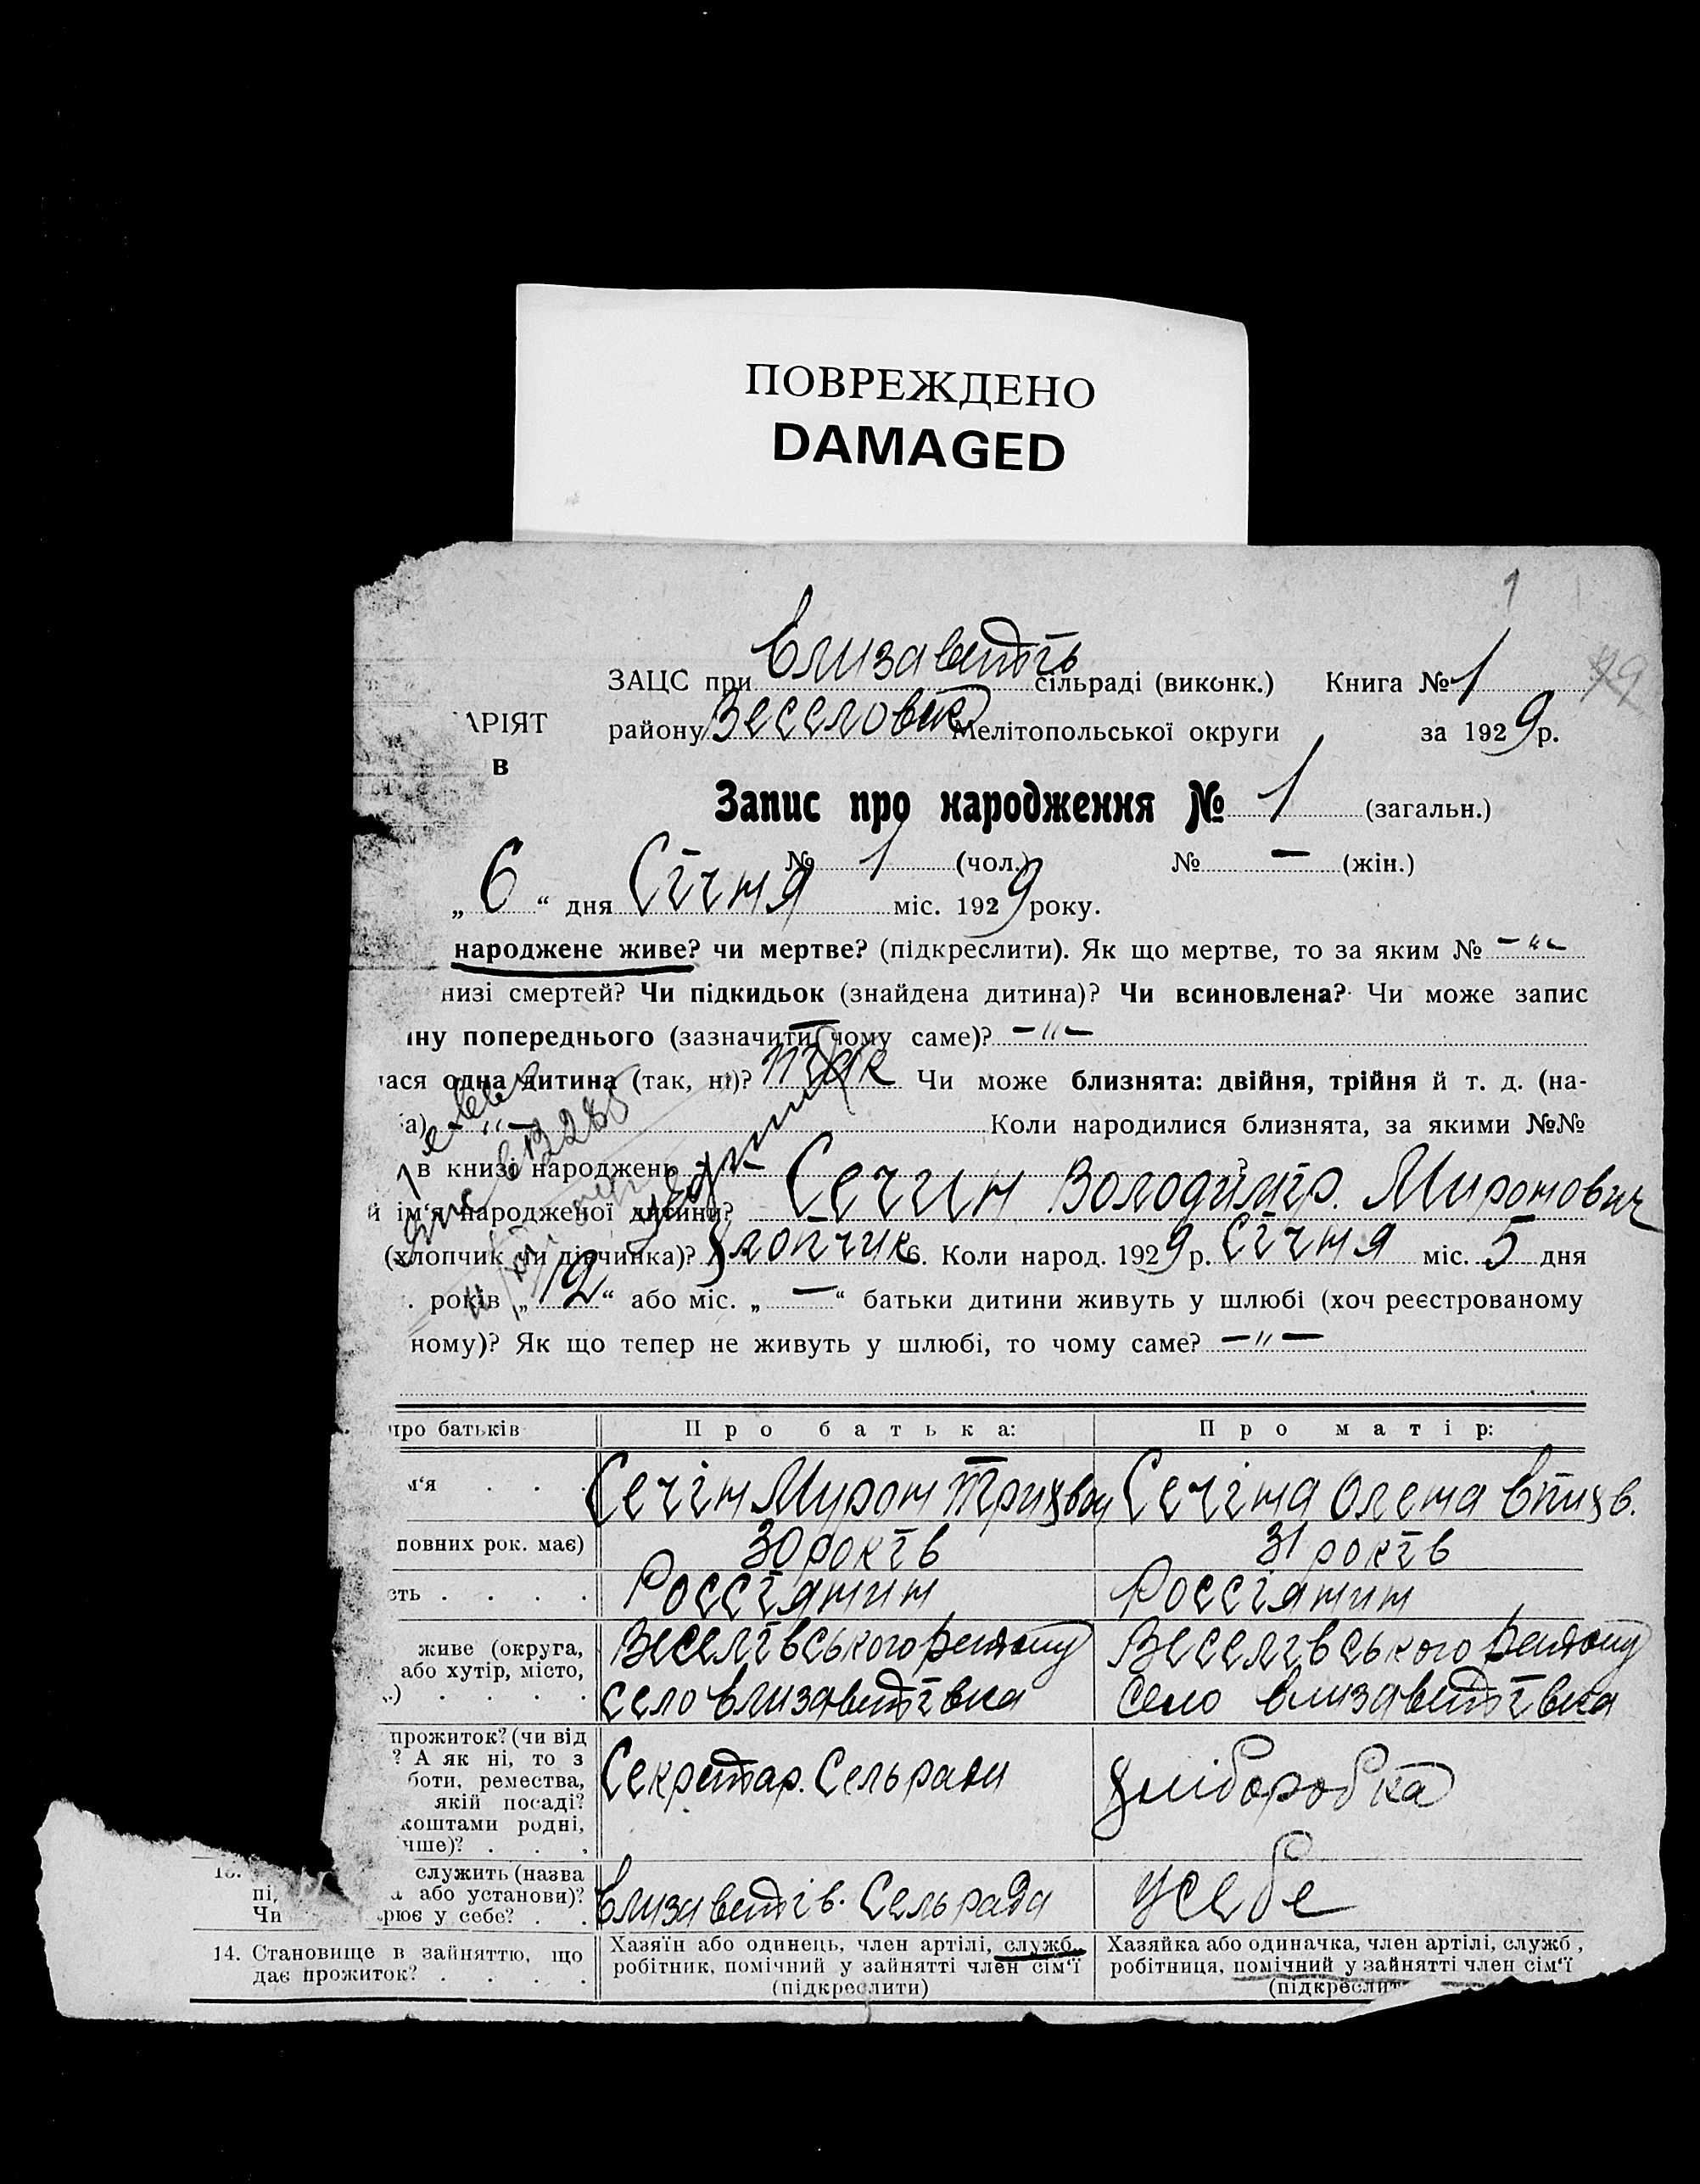 ПОВРЕЖДЕНО
DAMAGED
1
ЗАЦС при Єлизаветів сільраді (виконк.) Книга № 1
АРІЯТ району Веселовск Мелітопольської округи за 1929 р.
в
Запис про народження № 1 (загальн.)
№ 1 (чол.) № — (жін.)
„6“ дня Січня міс. 1929 року.
народжене живе? чи мертве? (підкреслити). Як що мертве, то за яким № —"—
низі смертей? Чи підкидьок (знайдена дитина)? Чи всиновлена? Чи може запис
іну попереднього (зазначити чому саме)? —"—
ася одна дитина (так, ні)? так Чи може близнята: двійня, трійня й т. д. (на-
а) —"— Коли народилися близнята, за якими №№
в книзі народжень
й ім‘я народженої дитини? Сечин Володимір. Миронович
(хлопчик чи дівчинка)? Хлопчик 6. Коли народ. 1929 р. Січня міс. 5 дня
. років „12“ або міс. „—“ батьки дитини живуть у шлюбі (хоч реєстрованому
ному)? Як що тепер не живуть у шлюбі, то чому саме? —"—
про батьків Про батька: Про матір:
м‘я . . . Сечін Мирон Сечіна Олена
повних рок. має) 30 років 31 років
сть . . . . Россіянин Россіянин
живе (округа, Веселівського району Веселівського району
або хутір, місто, село Єлизаветівка село Єлизаветівка
.) . . . .
прожиток? (чи від
? А як ні, то з Секретар. Сельради Хліборобка
боти, ремества,
якій посаді?
коштами родні,
чше)? . . .
служить (назва
пі, а або установи)? Єлизаветів. Сельрада У себе
Чи рює у себе? . .
14. Становище в зайняттю, що Хазяїн або одинець, член артілі, служб., Хазяйка або одиначка, член артілі, служб.,
дає прожиток? . . . . робітник, помічний у зайнятті член сім‘ї робітниця, помічний у зайнятті член сім‘ї
(підкреслити) (підкреслит